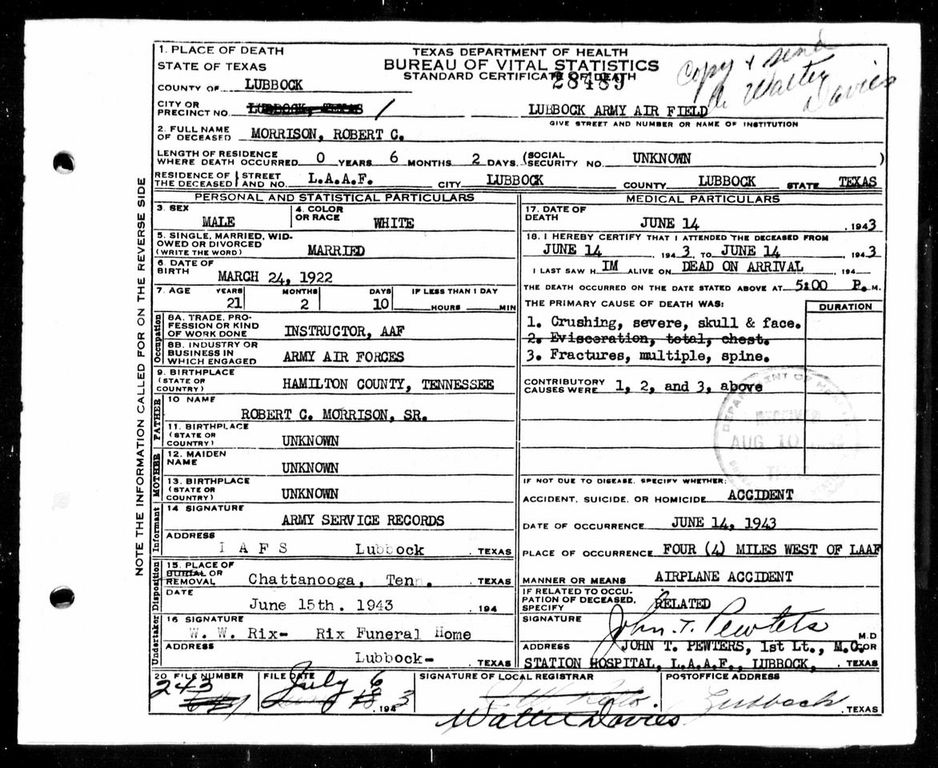 1. PLACE OF DEATH
STATE OF TEXAS
COUNTY OF LUBBOCK
CITY OR PRECINCT NO. LUBBOCK, TEXAS 1
TEXAS DEPARTMENT OF HEALTH
BUREAU OF VITAL STATISTICS
STANDARD CERTIFICATE OF DEATH
28489
Copy & send
Walter
Davies
LUBBOCK ARMY AIR FIELD
GIVE STREET AND NUMBER OR NAME OF INSTITUTION
2. FULL NAME OF DECEASED MORRISON, ROBERT G.
LENGTH OF RESIDENCE WHERE DEATH OCCURRED 0 YEARS 6 MONTHS 2 DAYS. (SOCIAL SECURITY NO. UNKNOWN )
RESIDENCE OF THE DECEASED STREET AND NO. L.A.A.F. CITY LUBBOCK COUNTY LUBBOCK STATE TEXAS
PERSONAL AND STATISTICAL PARTICULARS
3. SEX MALE
4. COLOR OR RACE WHITE
5. SINGLE, MARRIED, WIDOWED OR DIVORCED (WRITE THE WORD) MARRIED
6. DATE OF BIRTH MARCH 24, 1922
7. AGE YEARS 21 MONTHS 2 DAYS 10 IF LESS THAN 1 DAY HOURS MIN
Occupation
8A. TRADE, PROFESSION OR KIND OF WORK DONE INSTRUCTOR, AAF
8B. INDUSTRY OR BUSINESS IN WHICH ENGAGED ARMY AIR FORCES
9. BIRTHPLACE (STATE OR COUNTRY) HAMILTON COUNTY, TENNESSEE
FATHER
10 NAME ROBERT G. MORRISON, SR.
11. BIRTHPLACE (STATE OR COUNTRY) UNKNOWN
MOTHER
12. MAIDEN NAME UNKNOWN
13. BIRTHPLACE (STATE OR COUNTRY) UNKNOWN
Informant
14 SIGNATURE ARMY SERVICE RECORDS
ADDRESS L A F S Lubbock . TEXAS
Disposition
15. PLACE OF BURIAL OR REMOVAL Chattanooga, Tenn. . TEXAS
DATE June 15th. 1943 194
Undertaker
16 SIGNATURE W. W. Rix- Rix Funeral Home
ADDRESS Lubbock- . TEXAS
MEDICAL PARTICULARS
17. DATE OF DEATH JUNE 14 .1943
18. I HEREBY CERTIFY THAT I ATTENDED THE DECEASED FROM
JUNE 14 194 3 TO JUNE 14 194 3
I LAST SAW H IM ALIVE ON DEAD ON ARRIVAL , 194
THE DEATH OCCURRED ON THE DATE STATED ABOVE AT 5:00 P. M.
THE PRIMARY CAUSE OF DEATH WAS: DURATION
1. Crushing, severe, skull & face.
2. Evisceration, total, chest.
3. Fractures, multiple, spine.
CONTRIBUTORY CAUSES WERE 1, 2, and 3, above
DEPARTMENT OF HEALTH
RECEIVED
AUG 10
IF NOT DUE TO DISEASE, SPECIFY WHETHER:
ACCIDENT, SUICIDE, OR HOMICIDE ACCIDENT
DATE OF OCCURRENCE JUNE 14, 1943
PLACE OF OCCURRENCE FOUR (4) MILES WEST OF LAAF
MANNER OR MEANS AIRPLANE ACCIDENT
IF RELATED TO OCCUPATION OF DECEASED, SPECIFY RELATED
SIGNATURE John T. Pewters M.D
ADDRESS JOHN T. PEWTERS, 1st Lt., M.C. OR
STATION HOSPITAL, L.A.A.F., LUBBOCK, . TEXAS
20 FILE NUMBER 243
FILE DATE July 6 18 .1943
SIGNATURE OF LOCAL REGISTRAR
Walter Davies
POSTOFFICE ADDRESS Lubbock . TEXAS
NOTE THE INFORMATION CALLED FOR ON THE REVERSE SIDE